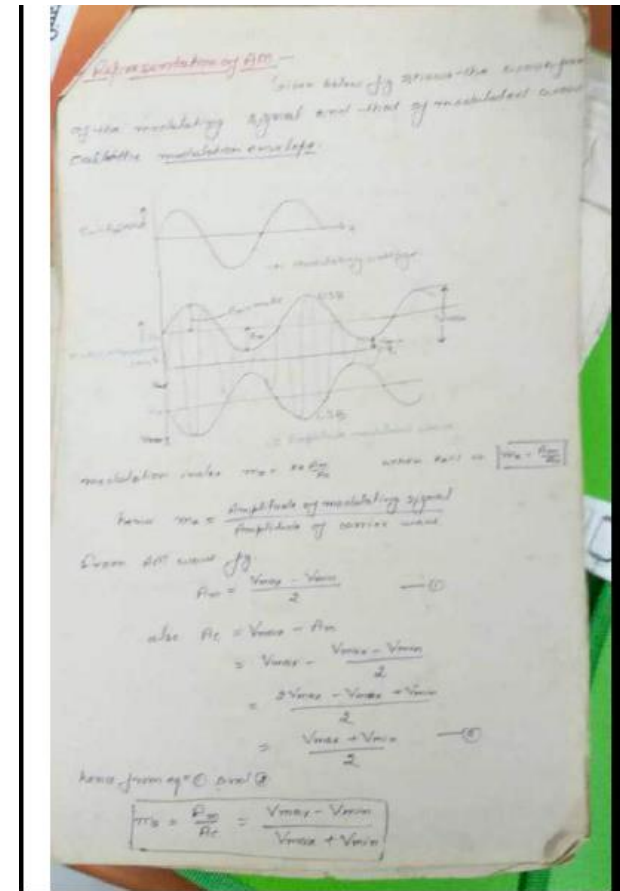 Representation of AM -
Given below fig shows the waveform
of the modulating signal and that of modulated wave
called the modulation envelope.
→ modulating voltage
USB
LSB
Vmax
→ Amplitude modulated wave
modulation index ma = ka Am/Ac when ka=1 ⇒ ma = Am/Ac
hence ma = Amplitude of modulating signal / Amplitude of carrier wave
From AM wave fig
Am = Vmax - Vmin / 2 — ①
also Ac = Vmax - Am
= Vmax - Vmax - Vmin / 2
= 2Vmax - Vmax + Vmin / 2
= Vmax + Vmin / 2 — ②
hence from eqn ① and ②
ma = Am/Ac = Vmax - Vmin / Vmax + Vmin